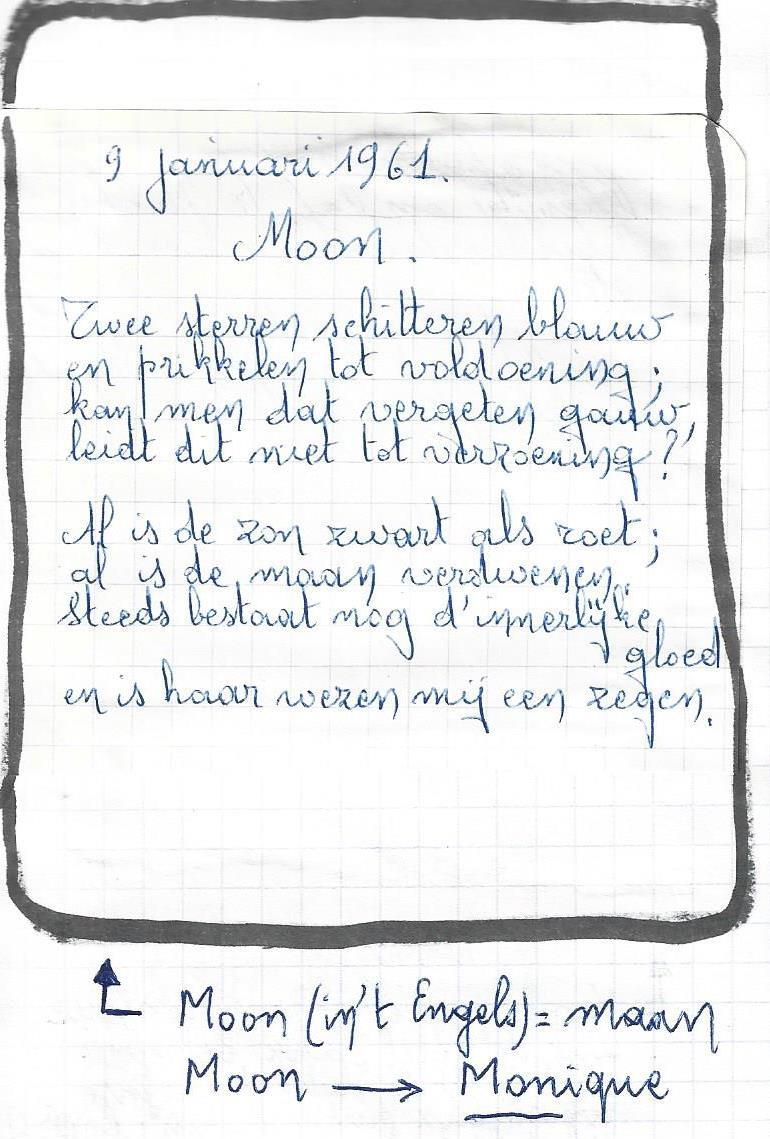 9 januari 1961.
Moon.
Twee sterren schitteren blauw
en prikkelen tot voldoening;
kan men dat vergeten gauw,
leidt dit niet tot verzoening?
Al is de zon zwart als roet;
al is de maan verdwenen,
steeds bestaat nog d'innerlijke
gloed
en is haar wezen mij een zegen.
Moon (in't Engels) = maan
Moon → Monique